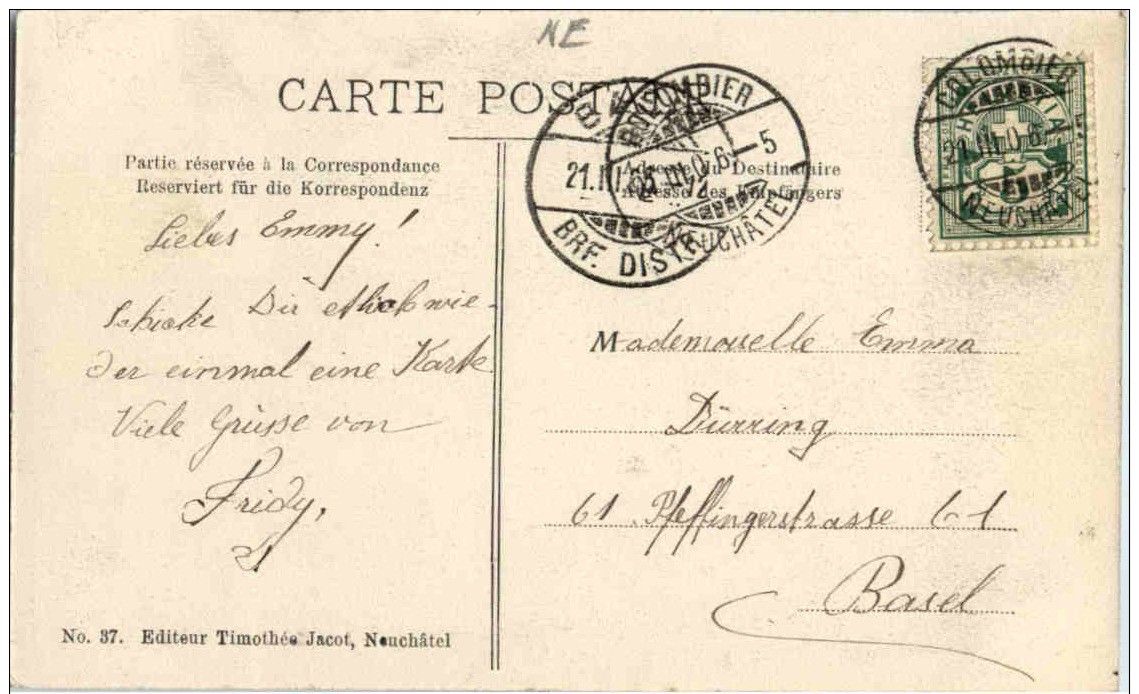 NE
CARTE POSTALE
Partie réservée à la Correspondance
Reserviert für die Korrespondenz
Adresse du Destinataire
Adresse des Empfängers
COLOMBIER
21.III.06.-5
NEUCHÂTEL
BRF. DISTR.
COLOMBIER
21.III.06.
NEUCHÂTEL
HELVETIA
5
Liebes Emmy!
Schicke Dir wie-
der einmal eine Karte
Viele Grüsse von
Fridy,
Mademoiselle Emma
Dürring
61 Pfeffingerstrasse 61
Basel
No. 37. Editeur Timothée Jacot, Neuchâtel